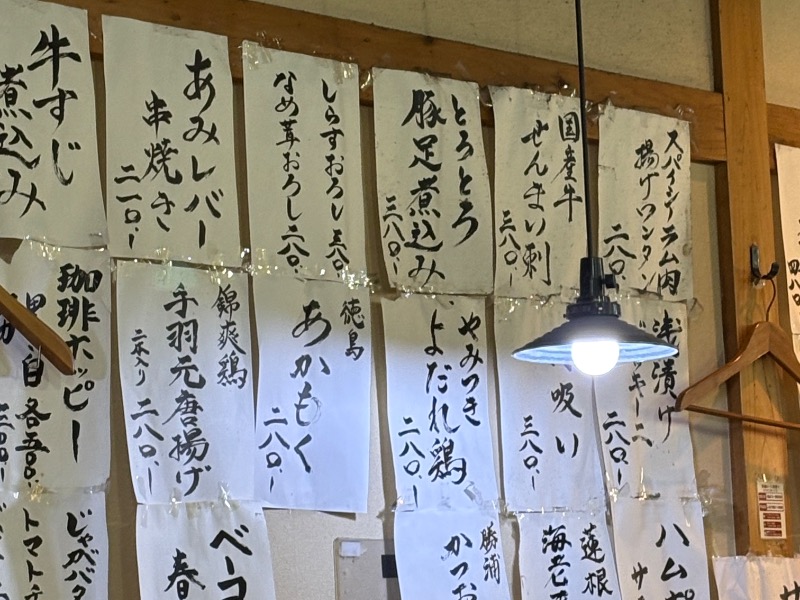 牛すじ
煮込み
あみレバー
串焼き
二一〇.ー
しらすおろし 三八〇
なめ茸おろし 二八〇.ー
とろとろ
豚足煮込み
三八〇.ー
国産牛
せんまい刺
三八〇.ー
スパイシーラム肉
揚げワンタン
二八〇.ー
四八〇.ー
珈琲ホッピー
黒 白 各五〇〇.ー
錦爽鶏
手羽元唐揚げ
二本入り 二八〇.ー
徳島
あかもく
二八〇.ー
やみつき
よだれ鶏
二八〇.ー
吸い
三八〇.ー
浅漬け
二八〇.ー
じゃがバタ
トマト
ベーコ
春
勝浦
かつお
蓮根
海老
ハムポ
サ